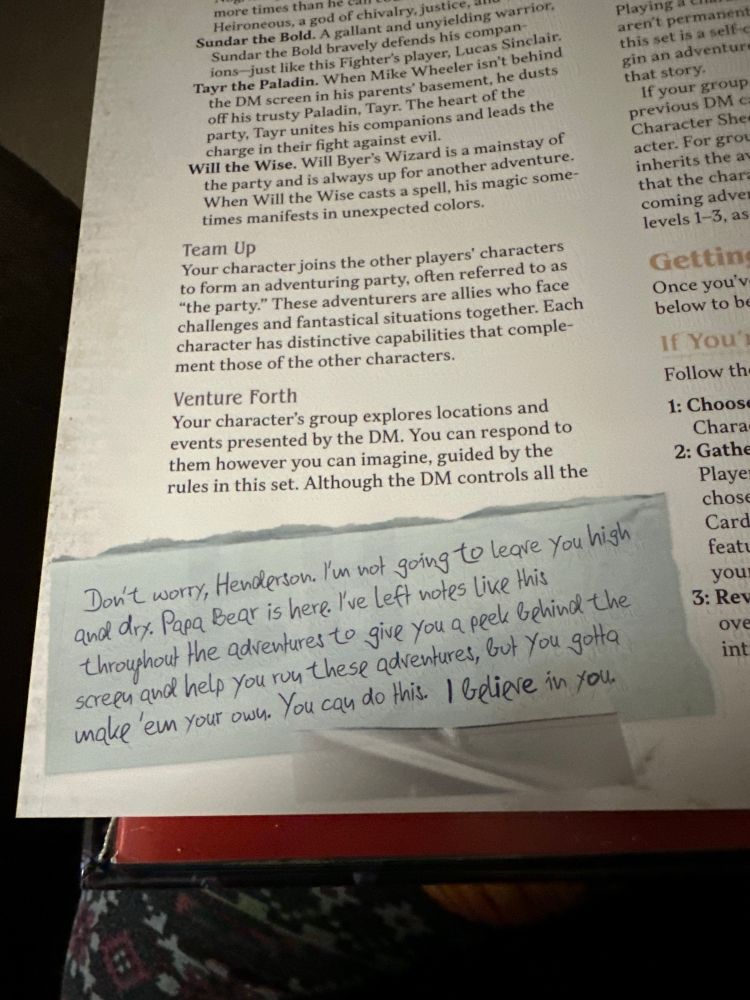 more times than he can
Heironeous, a god of chivalry, justice, and
Sundar the Bold. A gallant and unyielding warrior,
Sundar the Bold bravely defends his compan-
ions—just like this Fighter's player, Lucas Sinclair.
Tayr the Paladin. When Mike Wheeler isn't behind
the DM screen in his parents' basement, he dusts
off his trusty Paladin, Tayr. The heart of the
party, Tayr unites his companions and leads the
charge in their fight against evil.
Will the Wise. Will Byer's Wizard is a mainstay of
the party and is always up for another adventure.
When Will the Wise casts a spell, his magic some-
times manifests in unexpected colors.
Team Up
Your character joins the other players' characters
to form an adventuring party, often referred to as
“the party.” These adventurers are allies who face
challenges and fantastical situations together. Each
character has distinctive capabilities that comple-
ment those of the other characters.
Venture Forth
Your character's group explores locations and
events presented by the DM. You can respond to
them however you can imagine, guided by the
rules in this set. Although the DM controls all the
Don't worry, Henderson. I'm not going to leave you high
and dry. Papa Bear is here. I've left notes like this
throughout the adventures to give you a peek behind the
screen and help you run these adventures, but you gotta
make 'em your own. You can do this. I believe in you.
Playing a
aren't permanent
this set is a self-c
gin an adventur
that story.
If your group
previous DM c
Character Shee
acter. For grou
inherits the av
that the chara
coming adver
levels 1–3, as
Getting
Once you'v
below to be
If You'r
Follow the
1: Choose
Chara
2: Gathe
Player
chose
Card
featu
your
3: Rev
ove
int